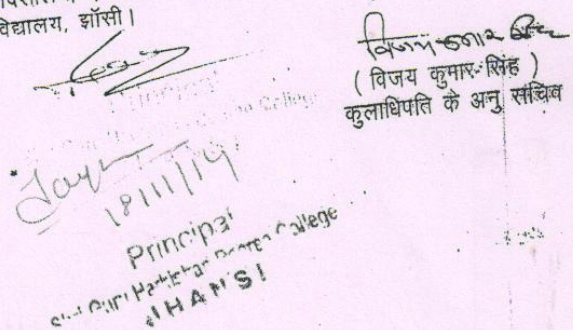 विद्यालय, झाँसी।
विजय कुमार सिंह
( विजय कुमार सिंह )
कुलाधिपति के अनु सचिव
Principal
College
18/11/14
Principal
Shri Guru Harkishan Degree College
JHANSI